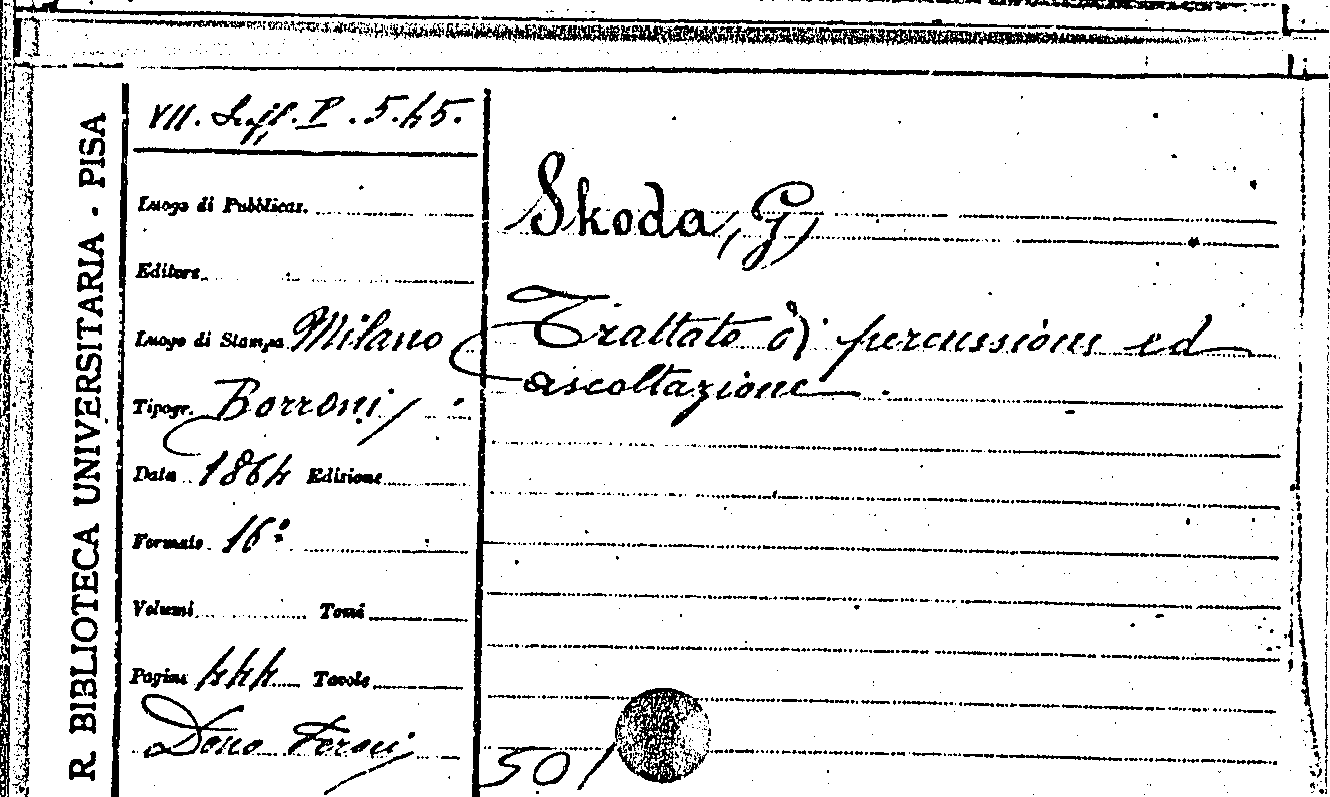 R. BIBLIOTECA UNIVERSITARIA - PISA
VII. Suff. P. 5.45.
Luogo di Pubblicaz.
Editore
Luogo di Stampa Milano
Tipogr. Borroni
Data 1864 Edizione
Formato 16º
Volumi Tomi
Pagine 444 Tavole
Dono Feroci
Skoda, G,
Trattato di percussione ed
ascoltazione.
501